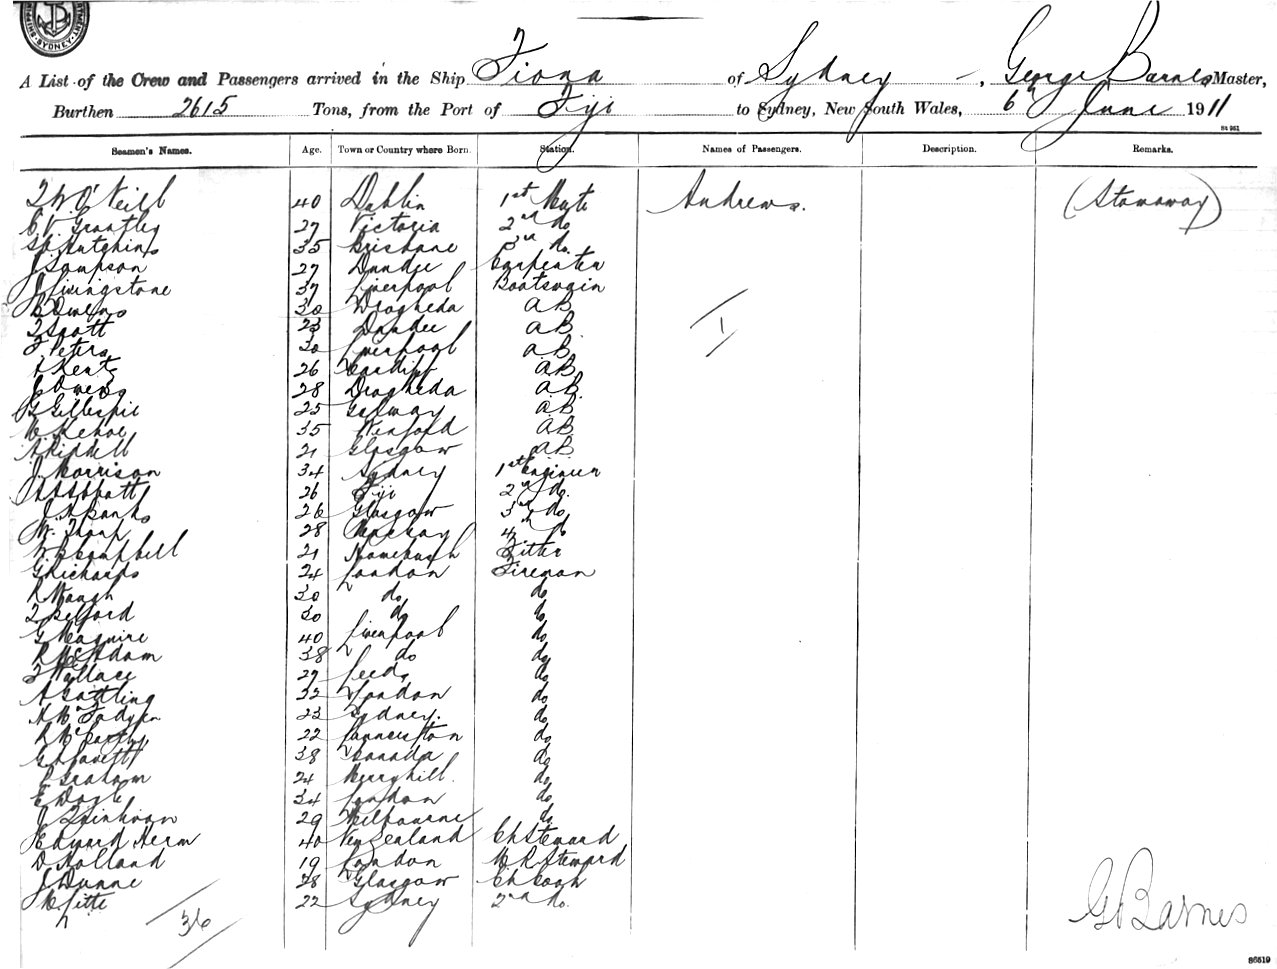 A List of the Crew and Passengers arrived in the Ship Fiona of Sydney, George Barnes Master,
Burthen 2615 Tons, from the Port of Fiji to Sydney, New South Wales, 6th June 1911
St 951
Seamen's Names. Age. Town or Country where Born. Station. Names of Passengers. Description. Remarks.
T W O'Neill 40 Dublin 1st Mate Andrews. (Stowaway)
C V Grantley 27 Victoria 2nd do
Hutchins 35 Brisbane 3rd do.
J Sampson 27 Dundee Carpenter
J Livingstone 37 Liverpool Boatswain
B Owens 30 Drogheda AB
T Scott 23 Dundee AB 1
F Peters 30 Liverpool AB
Kent 26 Cardiff AB
J Owens 28 Drogheda AB
G Gillespie 25 Galway AB
M Kehoe 35 Wexford AB
A Riddell 21 Glasgow AB
J Morrison 34 Sydney 1st Engineer
Abbott 26 Fiji 2nd do.
J A Banks 26 Glasgow 3rd do
W. Tharp 28 Mackay 4th do
Campbell 21 Homebush Fitter
G Richards 24 London Fireman
R Waugh 30 do do
T Telford 30 do do
G Maguire 40 Liverpool do
R McAdam 38 do do
T Wallace 27 Leeds do
A Gatling 32 London do
A McFadyen 23 Sydney. do
R McCarthy 22 Launceston do
G Lovett 38 Canada do
Graham 24 Merryhill. do
E Doyle 34 London do
J Quinlivan 29 Melbourne do
Edward Herm 40 New Zealand Ch Steward
D Holland 19 London M R Steward
J Dunne 28 Glasgow Ch Cook
22 Sydney 2nd do.
36
G Barnes
86519